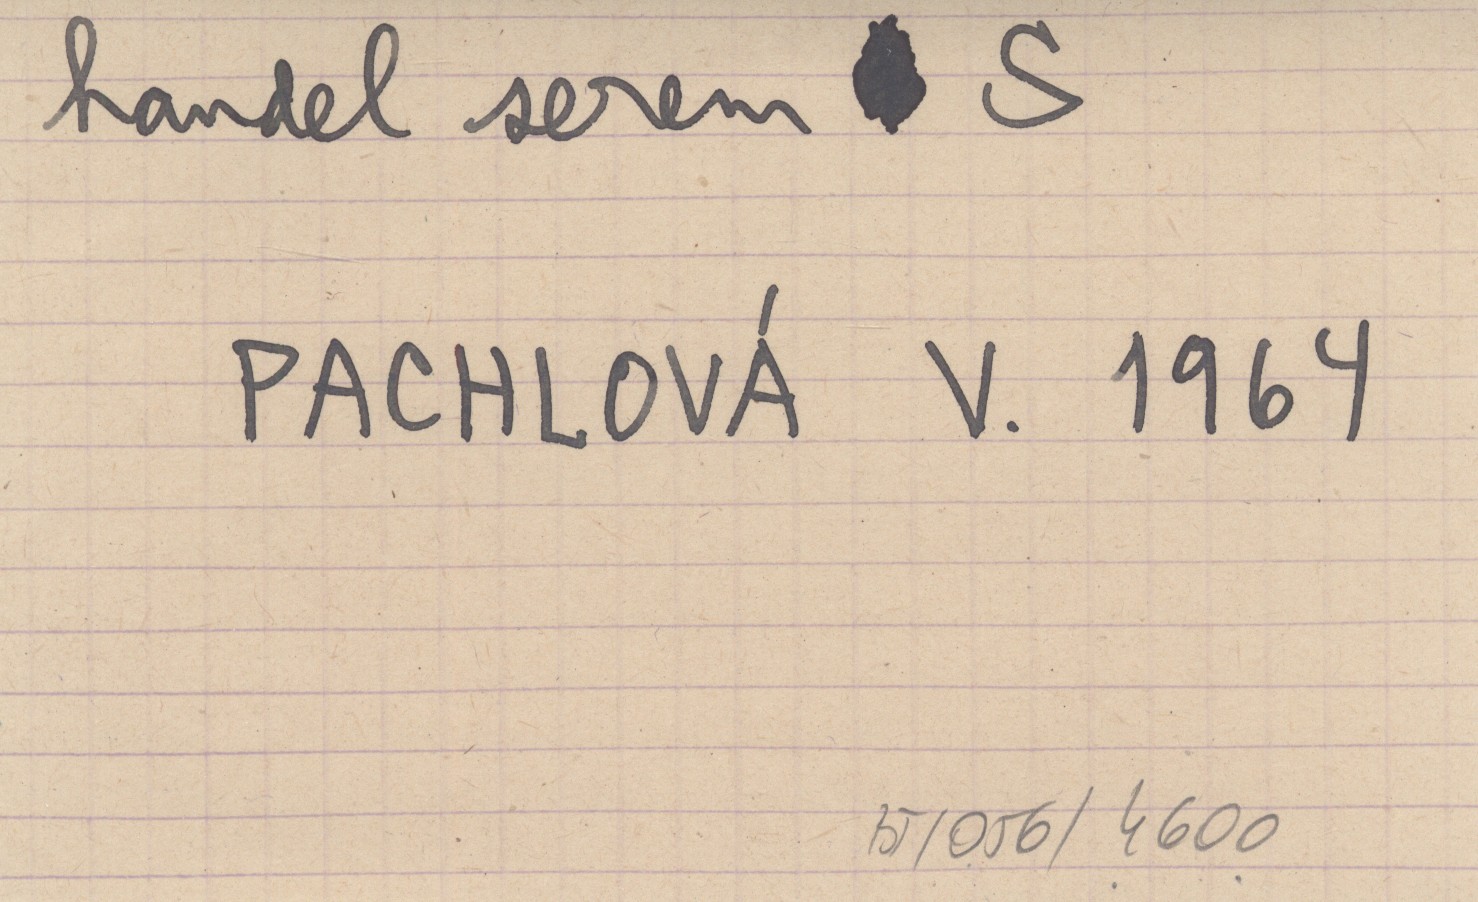 handel serem S
PACHLOVÁ V. 1964
/056/4600